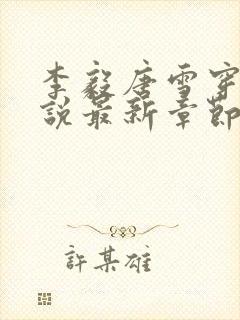 李毅唐雪穿
說最新章節
許某雄